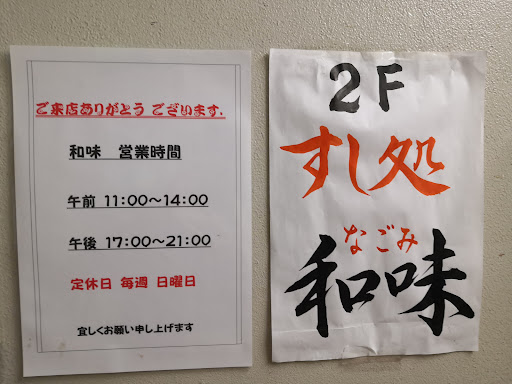 ご来店ありがとう ございます.
和味 営業時間
午前 11:00～14:00
午後 17:00～21:00
定休日 毎週 日曜日
宜しくお願い申し上げます
2F
すし処
なごみ
和味